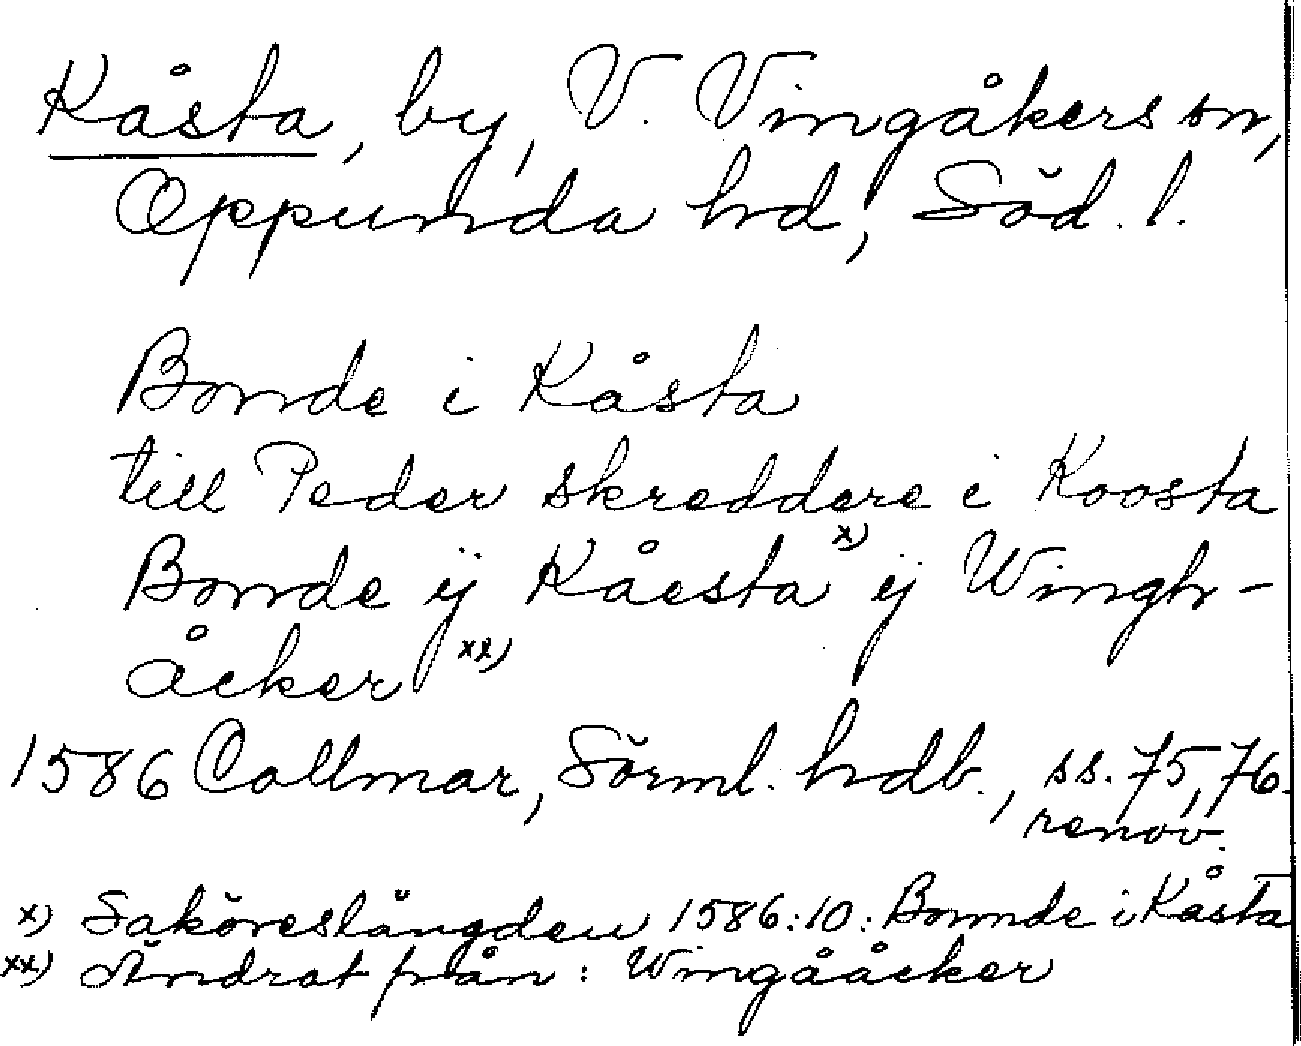 Kåsta, by, V. Vingåkers sn,
Oppunda hd, Söd. l.
Bonde i Kåsta
till Peder skreddere i Koosta
Bonde ij Kåesta x) ij Wingh-
åcker xx)
1586 Collmar, Sörml. hdb., ss. 75, 76.
renov.
x) Saköreslängden 1586:10: Bonnde i Kåsta
xx) Ändrat från: Wingååcker